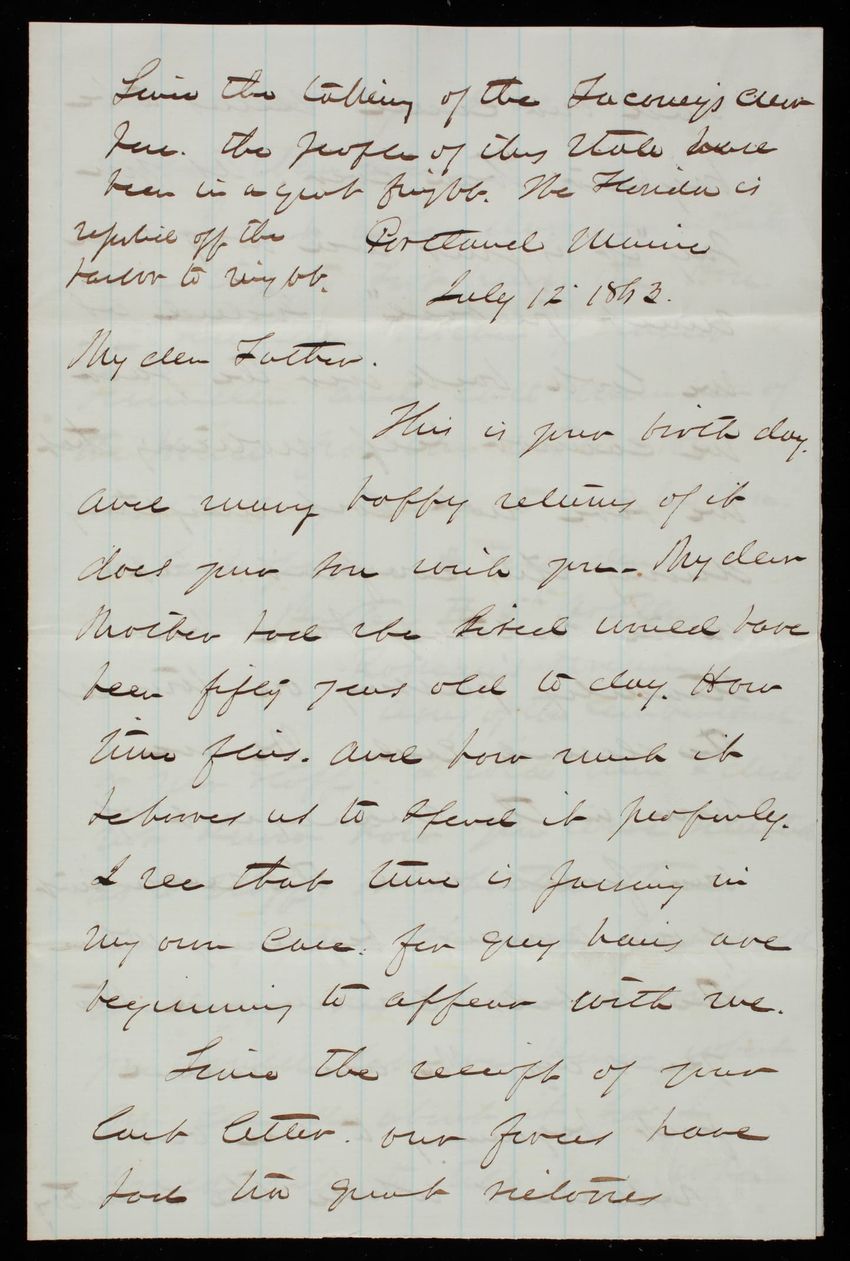 Since the taking of the Tacony's crew
here. the people of this State have
been in a great fright. The Florida is
reported off the
harbor to night.
Portland Maine
July 12 1863.
My dear Father.
This is your birth day.
and many happy returns of it
does your son wish you - My dear
Mother had she lived would have
been fifty years old to day. How
time flies. and how much it
behooves us to spend it properly.
I see that time is passing in
my own case. for grey hairs are
beginning to appear with me.
Since the receipt of your
last letter. our forces have
had two great victories